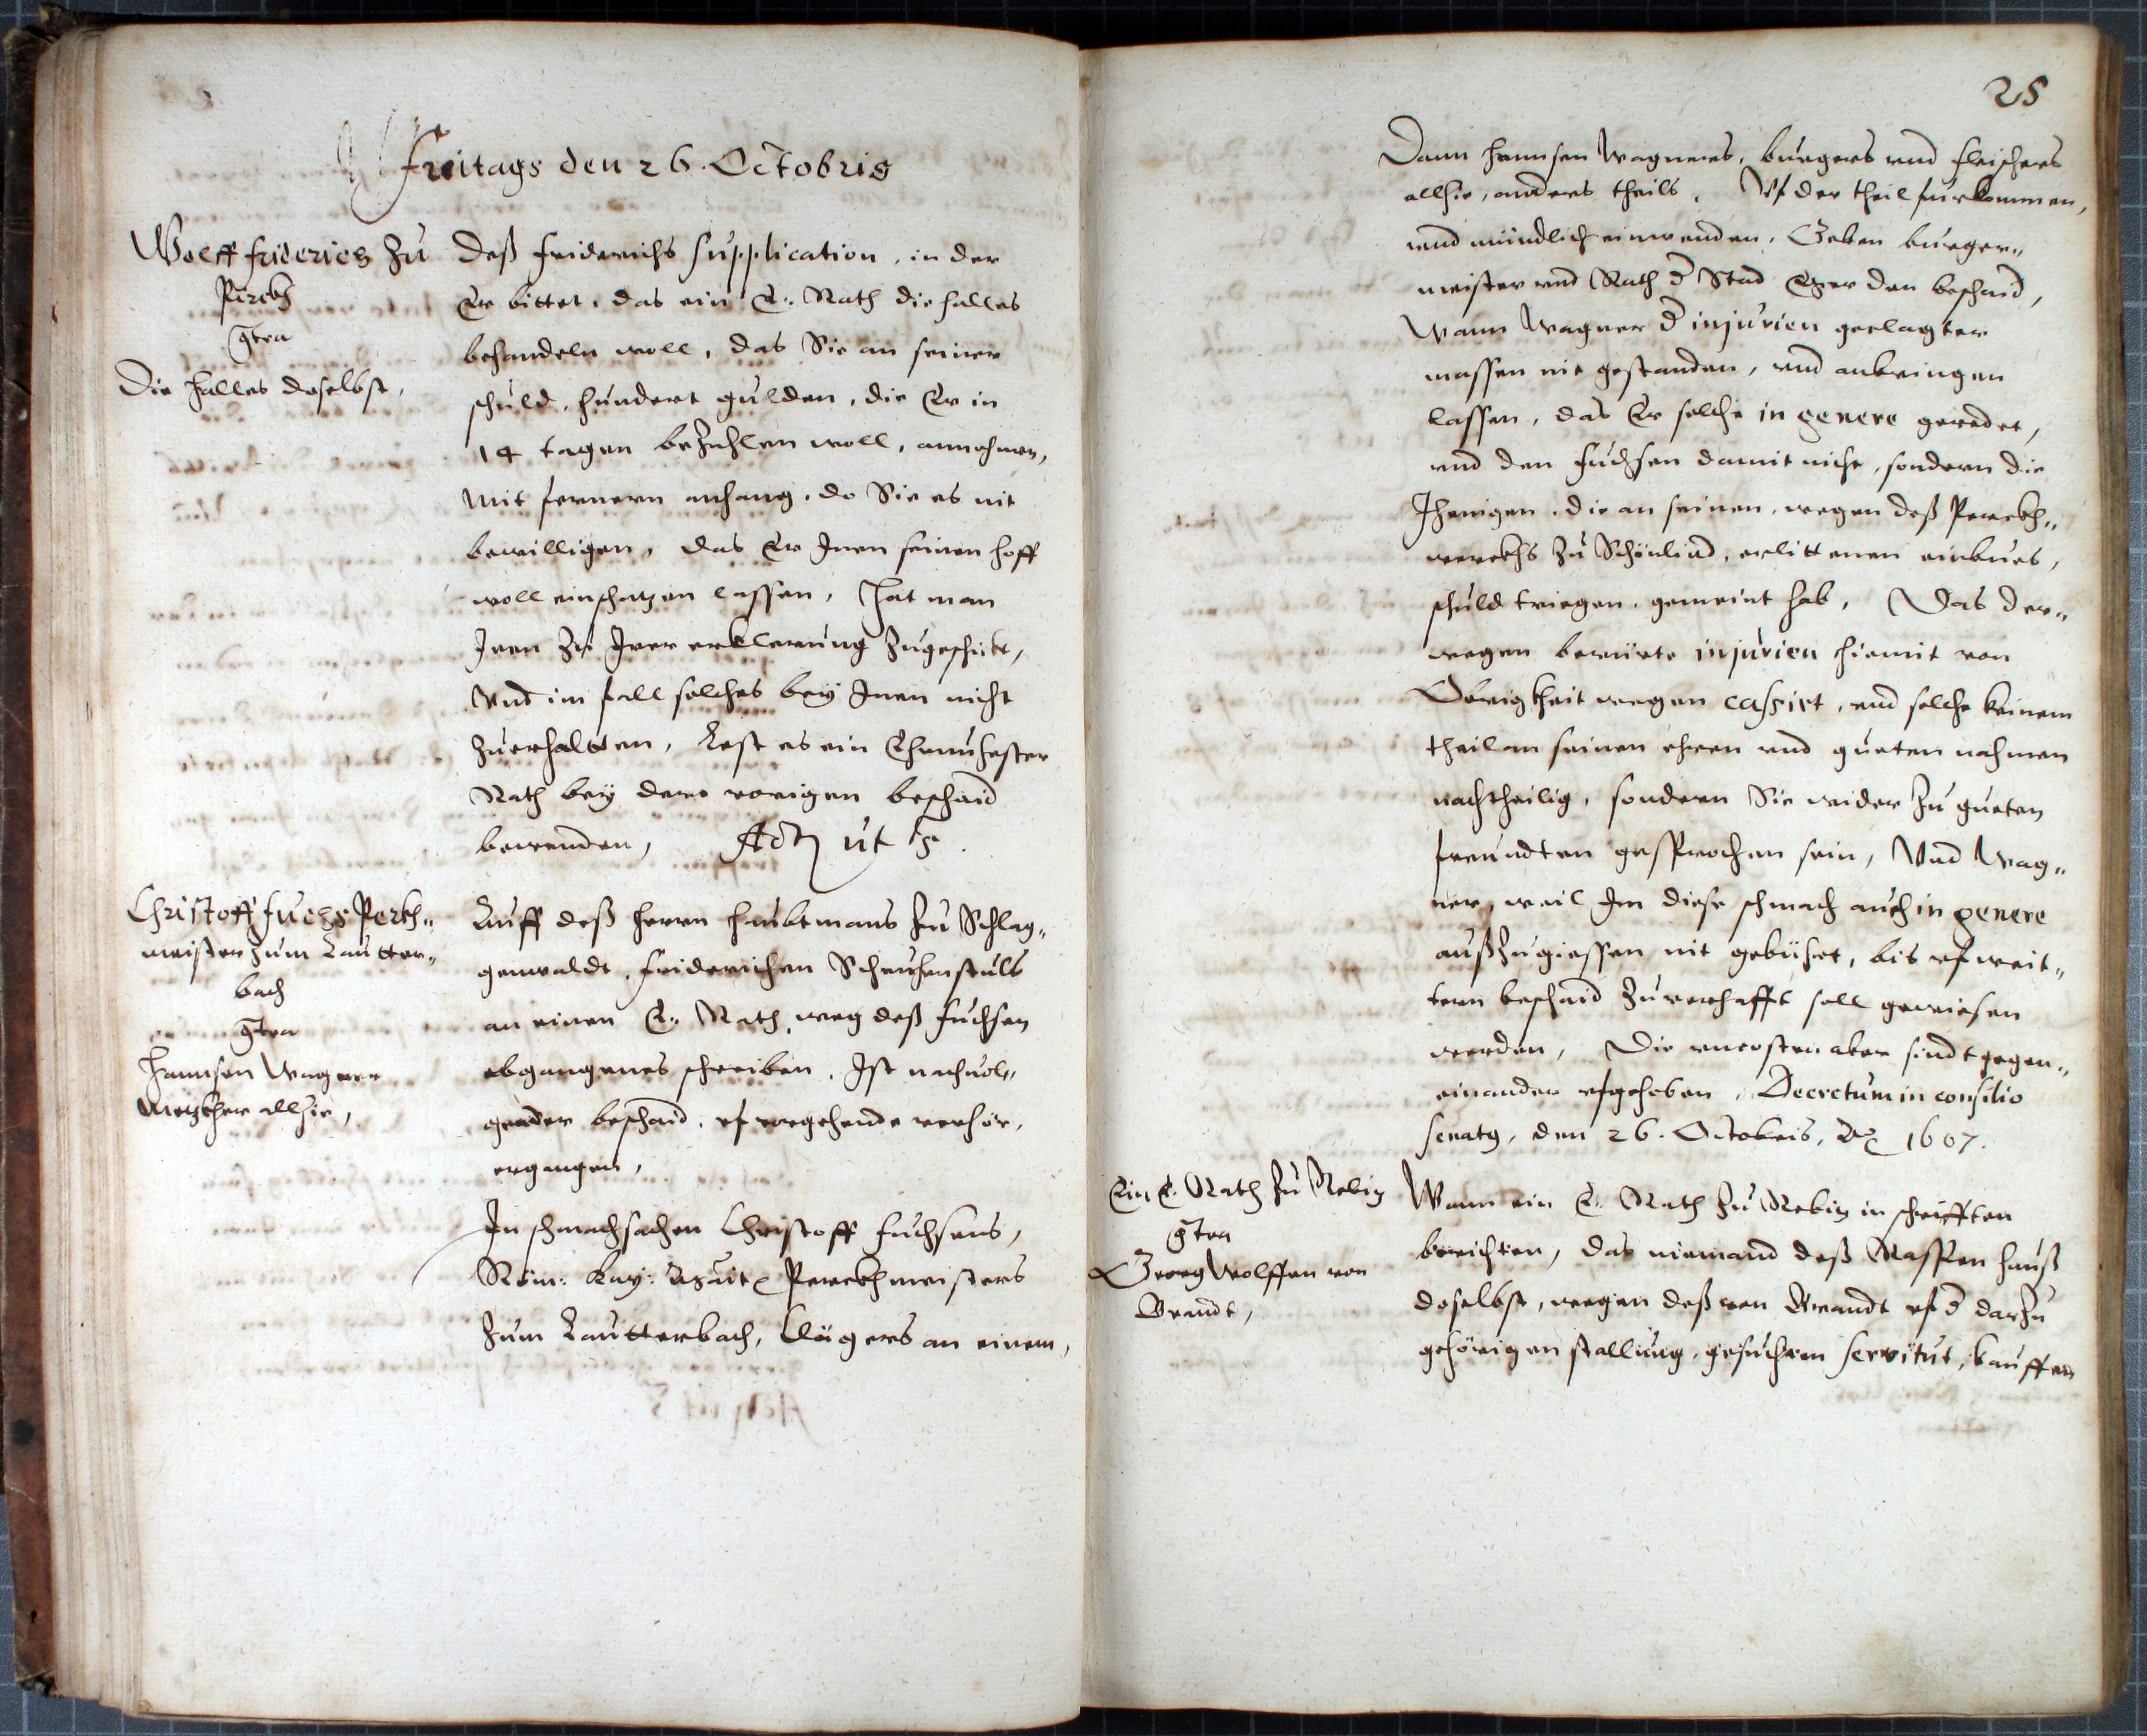 Freitags den 26. Octobris
Wolff Friderich zu
Pirckh
gtra
Die Halles doselbst,
Deß Friderichs Supplication, in der
Er bittet, das ein E. Rath die Halles
behandeln woll, das Sie an seiner
schuld, hundert gulden, die Er in
14 tagen bezahlen woll, annehmen,
Mit fernern anhang, do Sie es nit
bewilligen, das Er Inen seinen hoff
woll einschatzen lassen, Hat man
Inen zu Irer erklerung zugeschickt,
Vnd im fall solches bey Inen nicht
zuerhaltten, Lest es ein Ehrnuhester
Rath bey dem vorigen beschaid
bewenden, Act ut S.
Christoff Fuchs Perkh„
meister zum Lautter„
bach
gtra
Hannsen Wagner
Metzkher allhie,
Auff deß herrn haubtmans zu Schlag„
genwaldt, Friderichen Scheuchenstuls
an einen E. Rath, weg deß Fuchsen
abgangenes schreiben, Ist nachuol„
gender beschaid, vf vorgehende verhör,
ergangen,
In schmachsachen Christoff Fuchsens,
Röm: Kay: Mait Perckhmeisters
zum Lautterbach, Clägers an einem,
25
Dann Hannsen Wagners, burgers vnd fleischers
allhie, anders theils, Vf der theil furkommen,
vnd mündlich einwenden, Geben burger„
meister vnd Rath d Stad Eger den beschaid,
Wann Wagner d injurien geclagter
massen nit gestanden, vnd anbringen
lassen, das Er solche in genere geredet,
vnd den Fuchsen damit nicht, sondern die
Jhenigen, die an seinen, wegen deß Perckh„
werckhs zu Schönlind, erlittenen einbues,
schuld triegen, gemeint hab, Das der„
wegen berürte injurien hiemit von
Obrigkheit wegen cassirt, vnd solche keinem
theil an seinen ehren vnd gueten nahmen
nachtheilig, sondern Sie wider zu gueten
freundten gesprochen sein, Vnd Wag„
ner, weil Im diese schmach auch in genere
außzugiessen nit gebüret, bis vf weit„
tern beschaid zuuerhafft soll gewiesen
werden, Die vncosten aber sindt gegen„
einander vfgehoben, Decretum in consilio
senatus, den 26. Octobris, 1607.
Ein E. Rath zu Rebitz
gtra
Georg Wolffen von
Brandt,
Wann ein E. Rath zu Rebitz in schrifften
berichten, das niemand deß Rasspen hauß
doselbst, wegen deß von Brandt vf d darzu
gehörigen stallung, gesuchten servitut, kauffen